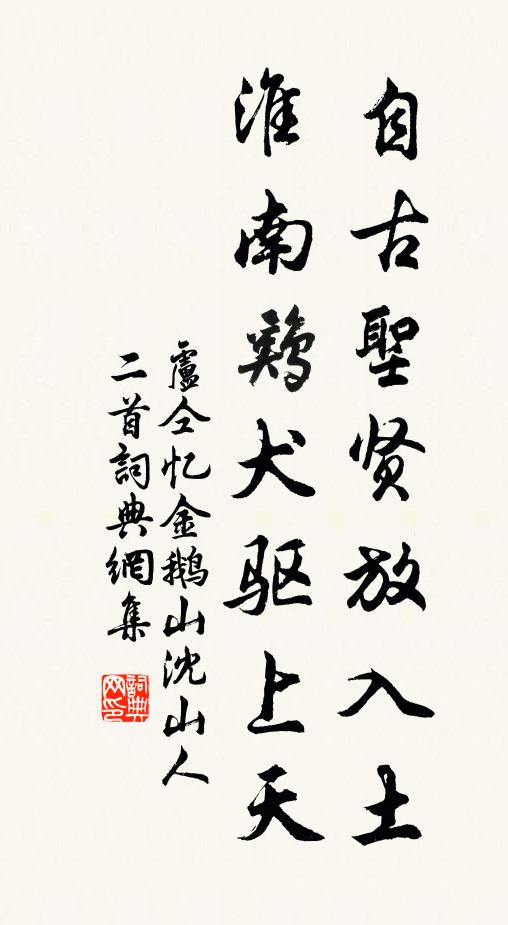 自古聖贤放入土
淮南鷄犬驱上天
盧仝忆金鹅山沈山人
二首詞典網集
詞典网印